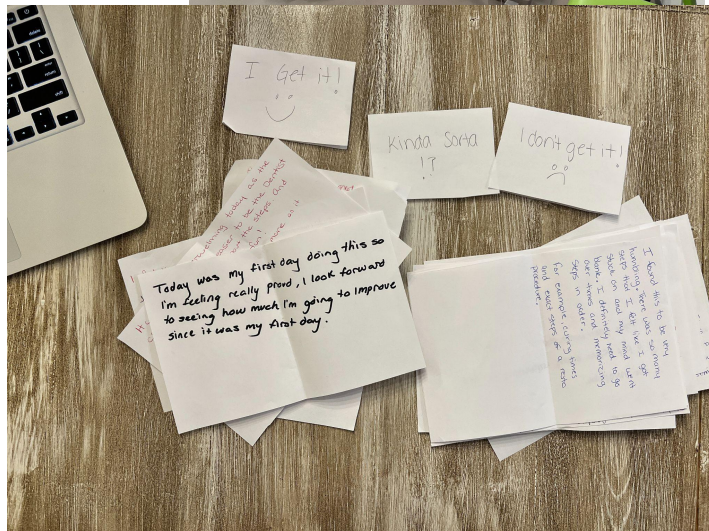 I Get it!
Kinda Sorta
!?
I don't get it!
today as the
to be the Dentist
the steps and
more on it
Today was my first day doing this so
I'm feeling really proud, I look forward
to seeing how much I'm going to Improve
since it was my first day.
I found this to be very
humbling, there was so many
steps that I felt like I got
stuck on and my mind went
blank. I definitely need to go
over times and memorizing
steps in order.
For example, curing times
and exact steps of a resto
procedure.